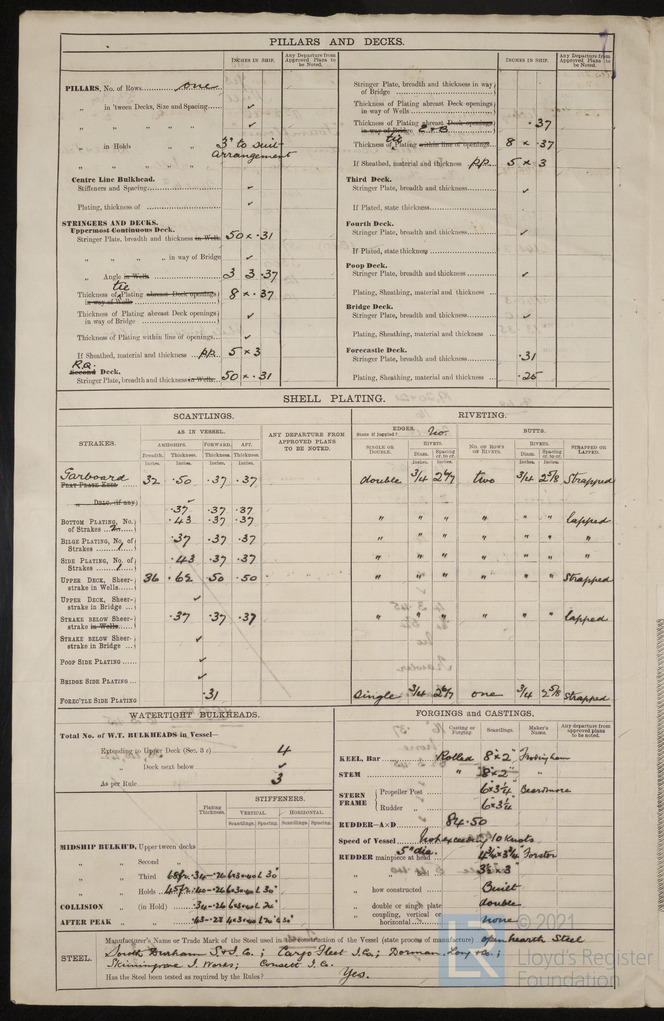 PILLARS AND DECKS.
INCHES IN SHIP.
Any Departure from Approved Plans to be Noted.
PILLARS, No. of Rows one
„ in 'tween Decks, Size and Spacing ✓
„ „ „ „ ✓
„ in Holds „ 3" to suit arrangement
„ „ „ „
Centre Line Bulkhead.
Stiffeners and Spacing ✓
Plating, thickness of ✓
STRINGERS AND DECKS.
Uppermost Continuous Deck.
Stringer Plate, breadth and thickness in Wells 50 × .31
„ „ „ „ in way of Bridge ✓
„ Angle in Wells 3 3 .37
Thickness of tie Plating abreast Deck openings in way of Wells 8 × .37
Thickness of Plating abreast Deck openings in way of Bridge ✓
Thickness of Plating within line of openings ✓
If Sheathed, material and thickness P.P. 5 × 3
R.Q. Second Deck.
Stringer Plate, breadth and thickness in Wells 50 × .31
INCHES IN SHIP.
Any Departure from Approved Plans to be Noted.
Stringer Plate, breadth and thickness in way of Bridge
Thickness of Plating abreast Deck openings in way of Wells
Thickness of Plating abreast Deck openings in way of Bridge E & B .37
Thickness of tie Plating within line of openings 8 × .37
If Sheathed, material and thickness P.P. 5 × 3
Third Deck.
Stringer Plate, breadth and thickness ✓
If Plated, state thickness
Fourth Deck.
Stringer Plate, breadth and thickness ✓
If Plated, state thickness
Poop Deck.
Stringer Plate, breadth and thickness ✓
Plating, Sheathing, material and thickness
Bridge Deck.
Stringer Plate, breadth and thickness ✓
Plating, Sheathing, material and thickness
Forecastle Deck.
Stringer Plate, breadth and thickness .31
Plating, Sheathing, material and thickness .25
SHELL PLATING.
SCANTLINGS.
RIVETING.
STRAKES.
AS IN VESSEL.
AMIDSHIPS. FORWARD. AFT.
Breadth. Thickness. Thickness. Thickness.
Inches. Inches. Inches. Inches.
ANY DEPARTURE FROM APPROVED PLANS TO BE NOTED.
EDGES. State if joggled? No.
SINGLE OR DOUBLE.
RIVETS.
Diam. Spacing cr. to cr.
Inches. Inches.
BUTTS.
No. OF ROWS OF RIVETS.
RIVETS.
Diam. Spacing cr. to cr.
Inches. Inches.
STRAPPED OR LAPPED.
Garboard FLAT PLATE KEEL 32 .50 .37 .37 double 3/4 two 3/4 2 5/8 Strapped
„ DBLG. (if any) ✓
.37 .37 .37
BOTTOM PLATING, No. of Strakes 2 .43 .37 .37 „ „ „ „ „ „ lapped
BILGE PLATING, No. of Strakes 1 .37 .37 .37 „ „ „ „ „ „ „
SIDE PLATING, No. of Strakes 1 .43 .37 .37 „ „ „ „ „ „ „
UPPER DECK, Sheerstrake in Wells 36 .62 .50 .50 „ „ „ „ „ „ Strapped
UPPER DECK, Sheerstrake in Bridge ✓
STRAKE BELOW SHEERstrake in Wells .37 .37 .37 „ „ „ „ „ „ lapped
STRAKE BELOW SHEERstrake in Bridge ✓
POOP SIDE PLATING ✓
BRIDGE SIDE PLATING ✓
FOREC'TLE SIDE PLATING .31 Single 3/4 one 3/4 2 5/8 Strapped
WATERTIGHT BULKHEADS.
Total No. of W.T. BULKHEADS in Vessel—
Extending to Upper Deck (Sec. 3 c) 4
„ Deck next below ✓
As per Rule 3
Plating Thickness.
STIFFENERS.
VERTICAL. HORIZONTAL.
Scantlings. Spacing. Scantlings. Spacing.
MIDSHIP BULKH'D, Upper tween decks
„ „ Second „
„ „ Third „ 68fr. .34-.26 6×3×.40 L 30"
„ „ Holds 45fr. .40-.26 6×3×.40 L 30"
COLLISION „ (in Hold) .34-.26 6×3×.40 L
AFTER PEAK „
FORGINGS AND CASTINGS.
Casting or Forging. Scantlings. Maker's Name. Any departure from approved plans to be noted.
KEEL, Bar Rolled 8" × 2" Frodingham
STEM „ 8" × 2" „
STERN FRAME Propeller Post 6 × 3 1/4 Beardmore
Rudder „ 6 × 3 1/4
RUDDER—A×D 84.50
Speed of Vessel Not exceeding 10 Knots
RUDDER mainpiece at head 5" dia. Forster
„ „ 3 1/2 × 3
„ how constructed Built
„ double or single plate double
„ coupling, vertical or horizontal none
STEEL.
Manufacturer's Name or Trade Mark of the Steel used in the construction of the Vessel (state process of manufacture) open hearth Steel
South Durham S & I. Co.; Cargo Fleet I. Co; Dorman Long & Co.;
Skinningrove I. Works; Consett I. Co.
Has the Steel been tested as required by the Rules? Yes.
© 2021
LR
Lloyd's Register
Foundation